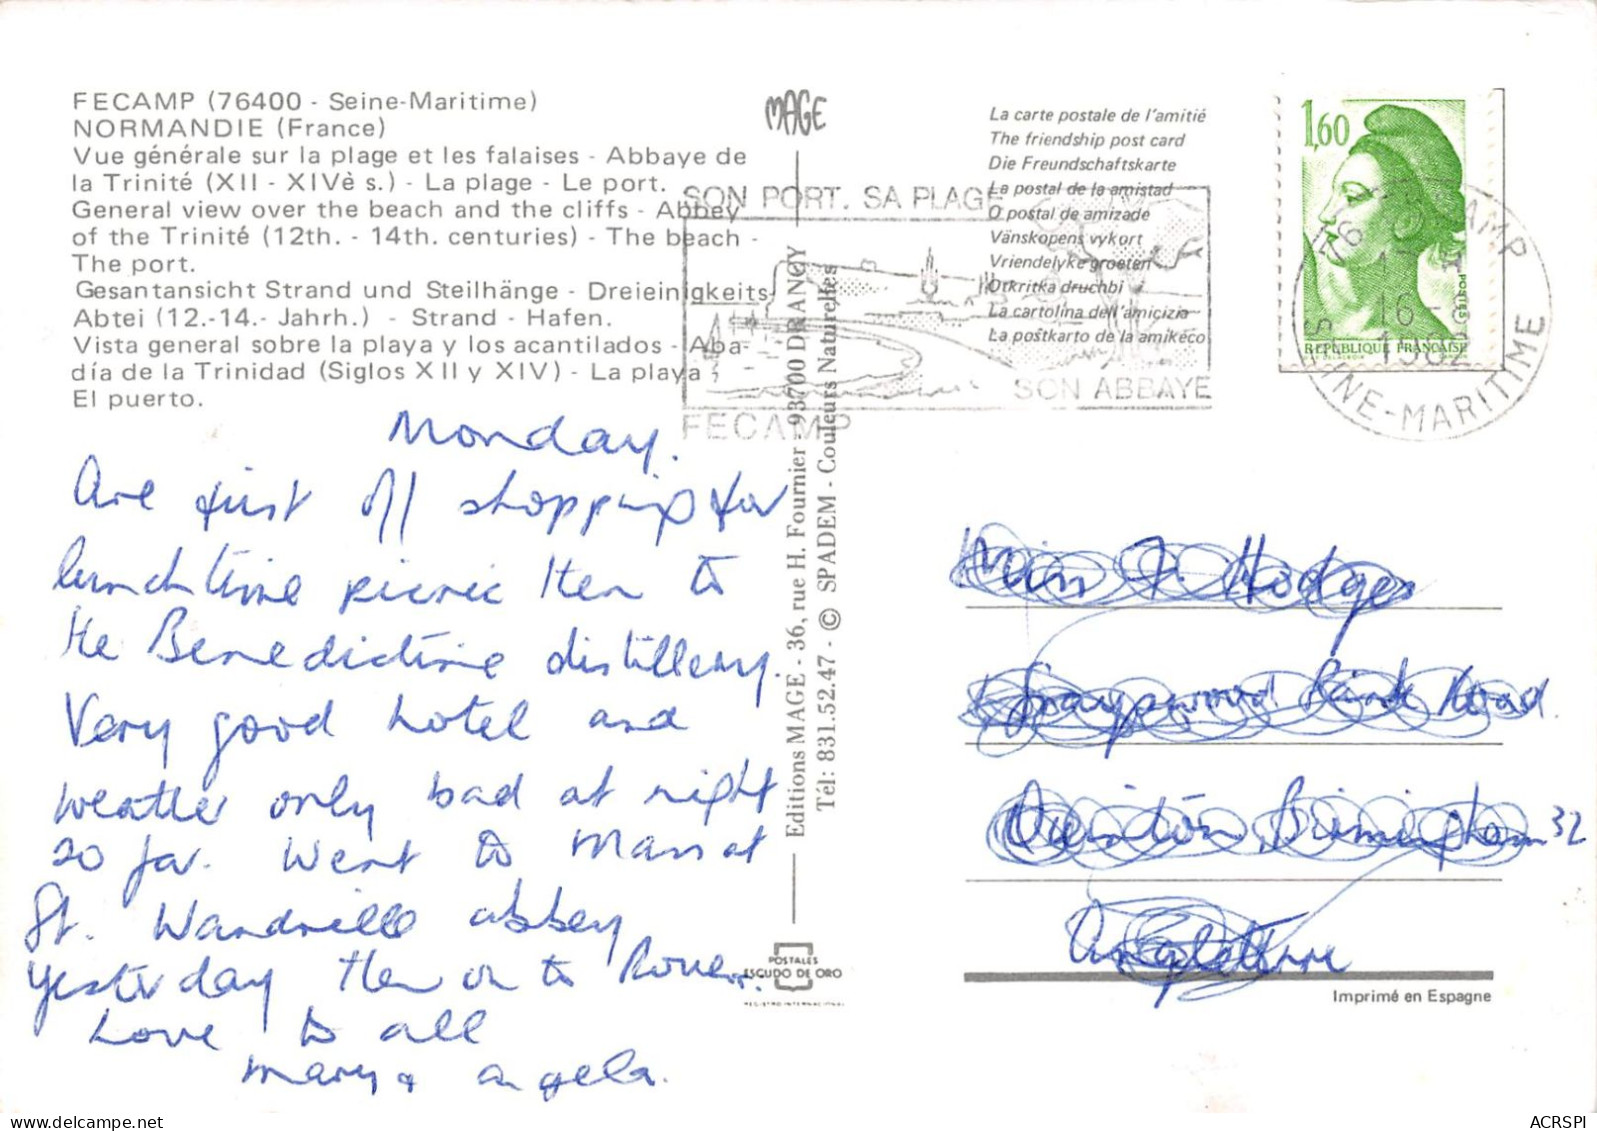 FECAMP (76400 - Seine-Maritime)
NORMANDIE (France)
Vue générale sur la plage et les falaises - Abbaye de
la Trinité (XII - XIVè s.) - La plage - Le port.
General view over the beach and the cliffs - Abbey
of the Trinité (12th. - 14th. centuries) - The beach -
The port.
Gesantansicht Strand und Steilhänge - Dreieinigkeits-
Abtei (12.-14.- Jahrh.) - Strand - Hafen.
Vista general sobre la playa y los acantilados - Aba-
día de la Trinidad (Siglos XII y XIV) - La playa -
El puerto.
Monday.
Are just off shopping for
lunchtime picnic then to
the Benedictine distillery.
Very good hotel and
weather only bad at night
so far. Went to Mass at
St. Wandrille abbey
yesterday then on to Rouen.
Love to all
Mary & Angela.
MAGE
Editions MAGE - 36, rue H. Fournier - 93700 DRANCY
Tél: 831.52.47 - © SPADEM - Couleurs Naturelles
POSTALES
ESCUDO DE ORO
REGISTRO INTERNACIONAL
La carte postale de l'amitié
The friendship post card
Die Freundschaftskarte
La postal de la amistad
O postal de amizade
Vänskopens vykort
Vriendelyke groeten
Otkritka druchbi
La cartolina dell'amicizia
La postkarto de la amikeco
SON PORT. SA PLAGE
SON ABBAYE
FECAMP
1,60
POSTES
REPUBLIQUE FRANÇAISE
76 FECAMP
16-8
1982
SEINE-MARITIME
F Hodges
Road.
Quinton, Birmingham 32
Angleterre
Imprimé en Espagne
ACRSPI